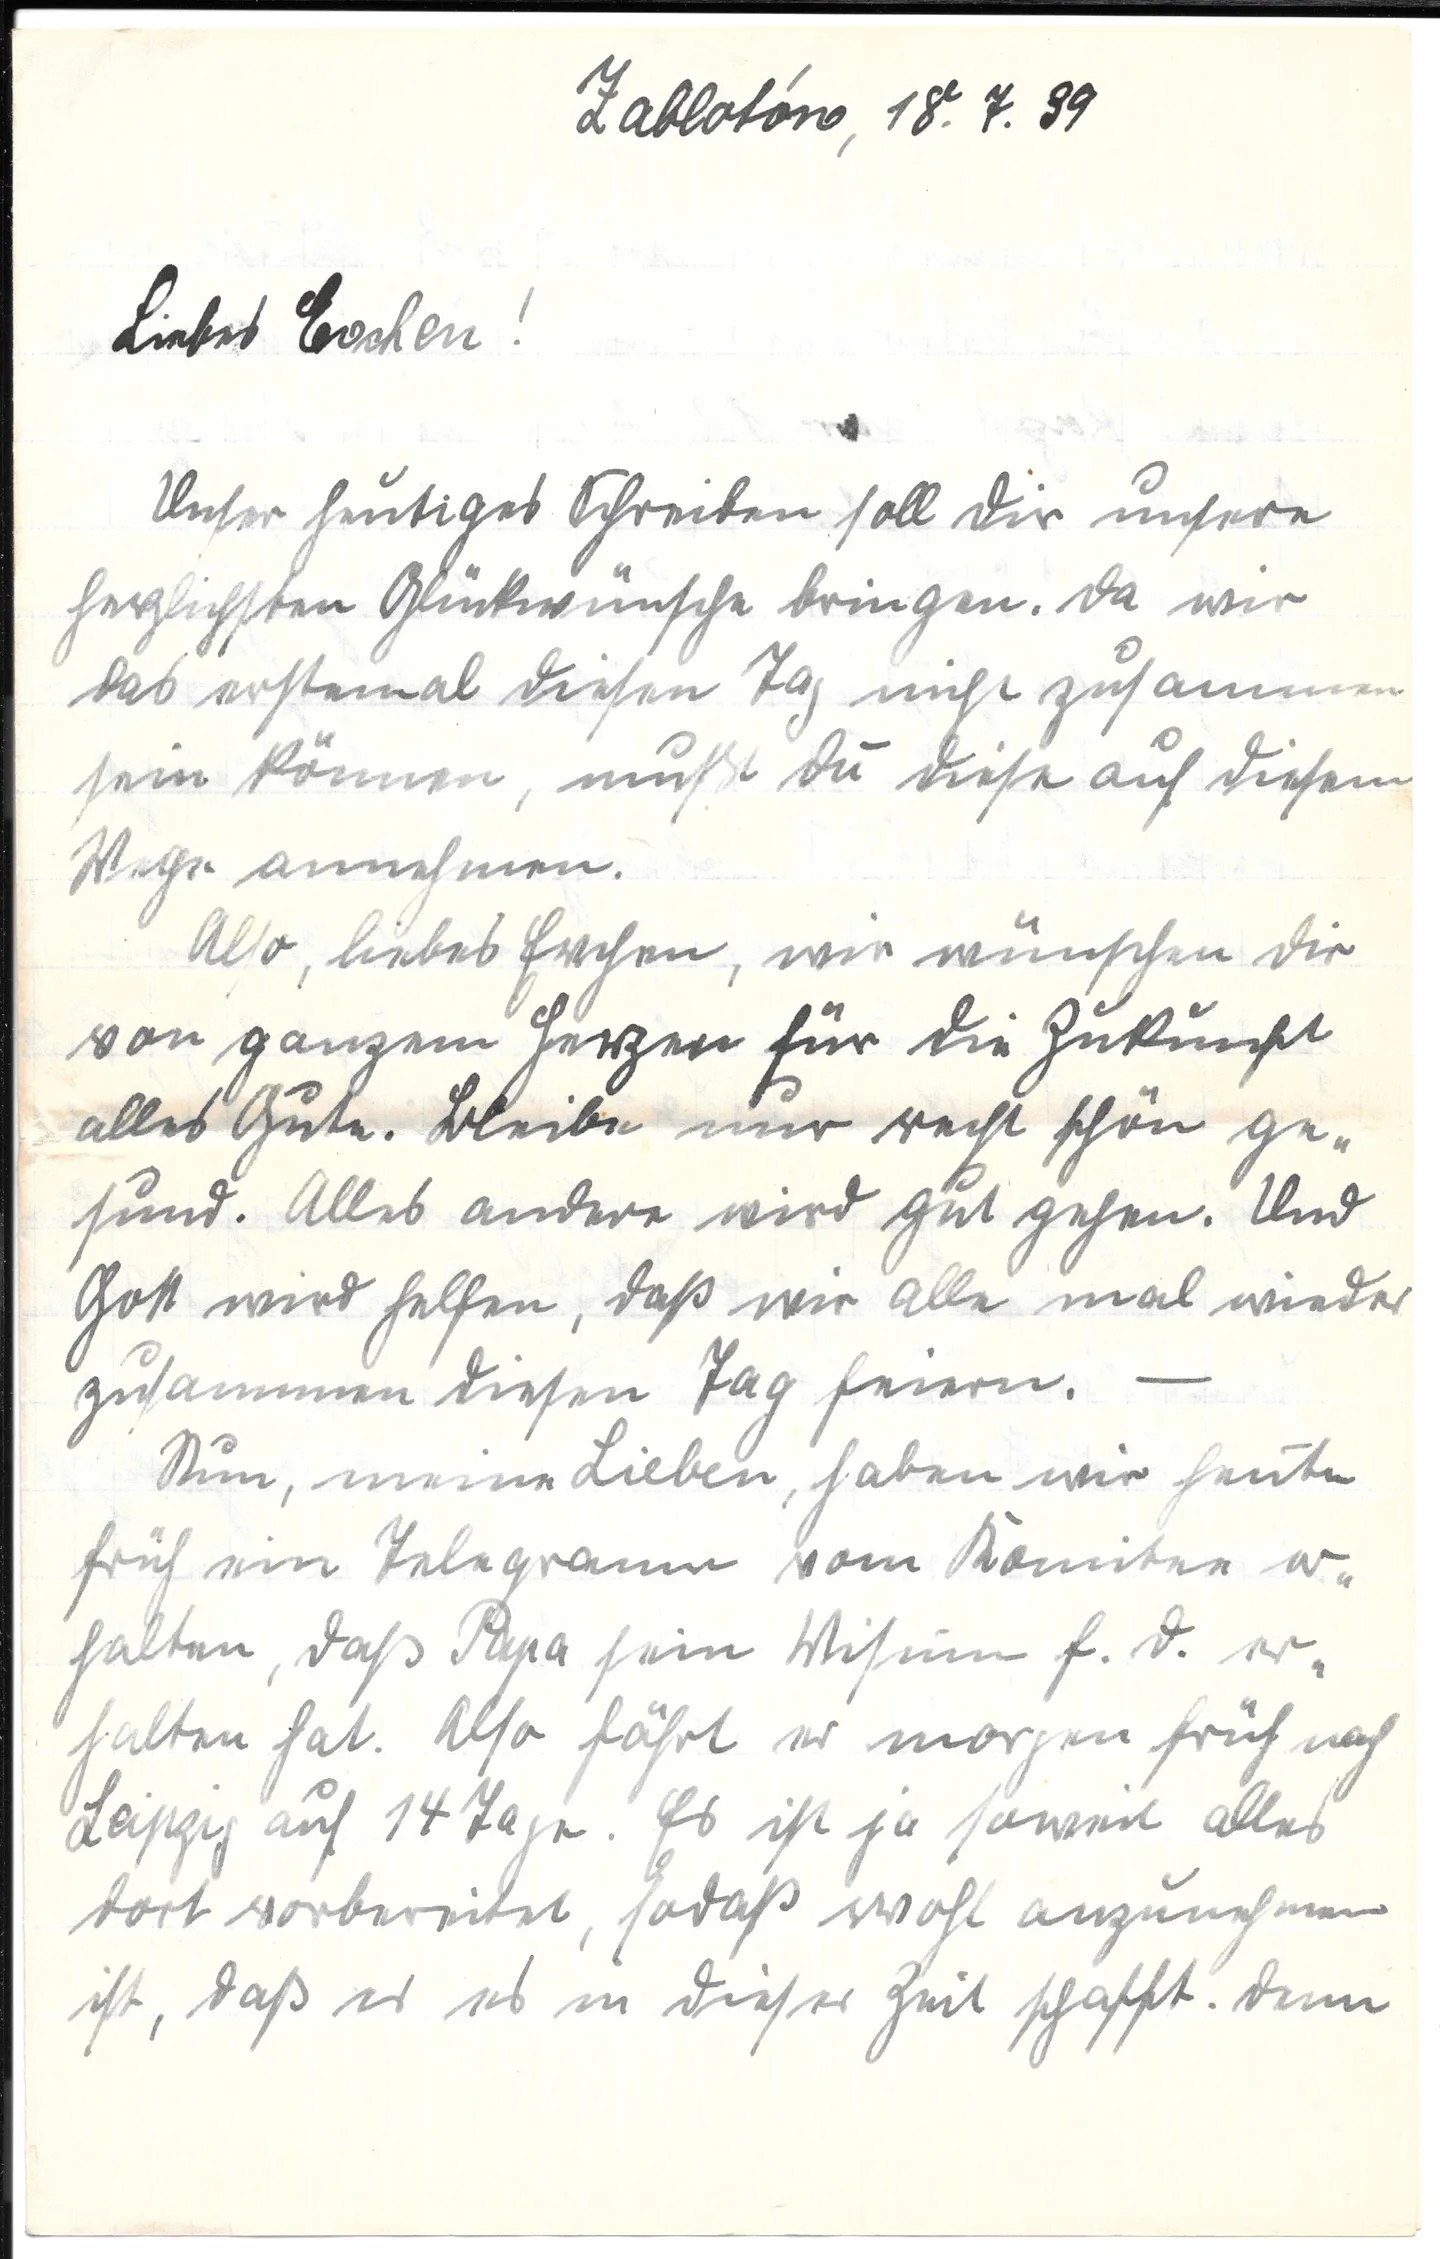 Zablotów, 18. 7. 39
Liebes Evchen!
Unser heutiges Schreiben soll Dir unsere
herzlichsten Glückwünsche bringen. Da wir
das erstemal diesen Tag nicht zusammen
sein können, mußt Du diese auf diesem
Wege annehmen.
Also, liebes Evchen, wir wünschen Dir
von ganzem Herzen für die Zukunft
alles Gute. Bleibe nur recht schön ge-
sund. Alles andere wird gut gehen. Und
Gott wird helfen, daß wir alle mal wieder
zusammen diesen Tag feiern. —
Nun, meine Lieben, haben wir heute
früh ein Telegramm vom Komitee er-
halten, daß Papa sein Visum f. D. er-
halten hat. Also fährt er morgen früh nach
Leipzig auf 14 Tage. Es ist ja soweit alles
dort vorbereitet, sodaß wohl anzunehmen
ist, daß er es in dieser Zeit schafft. Denn